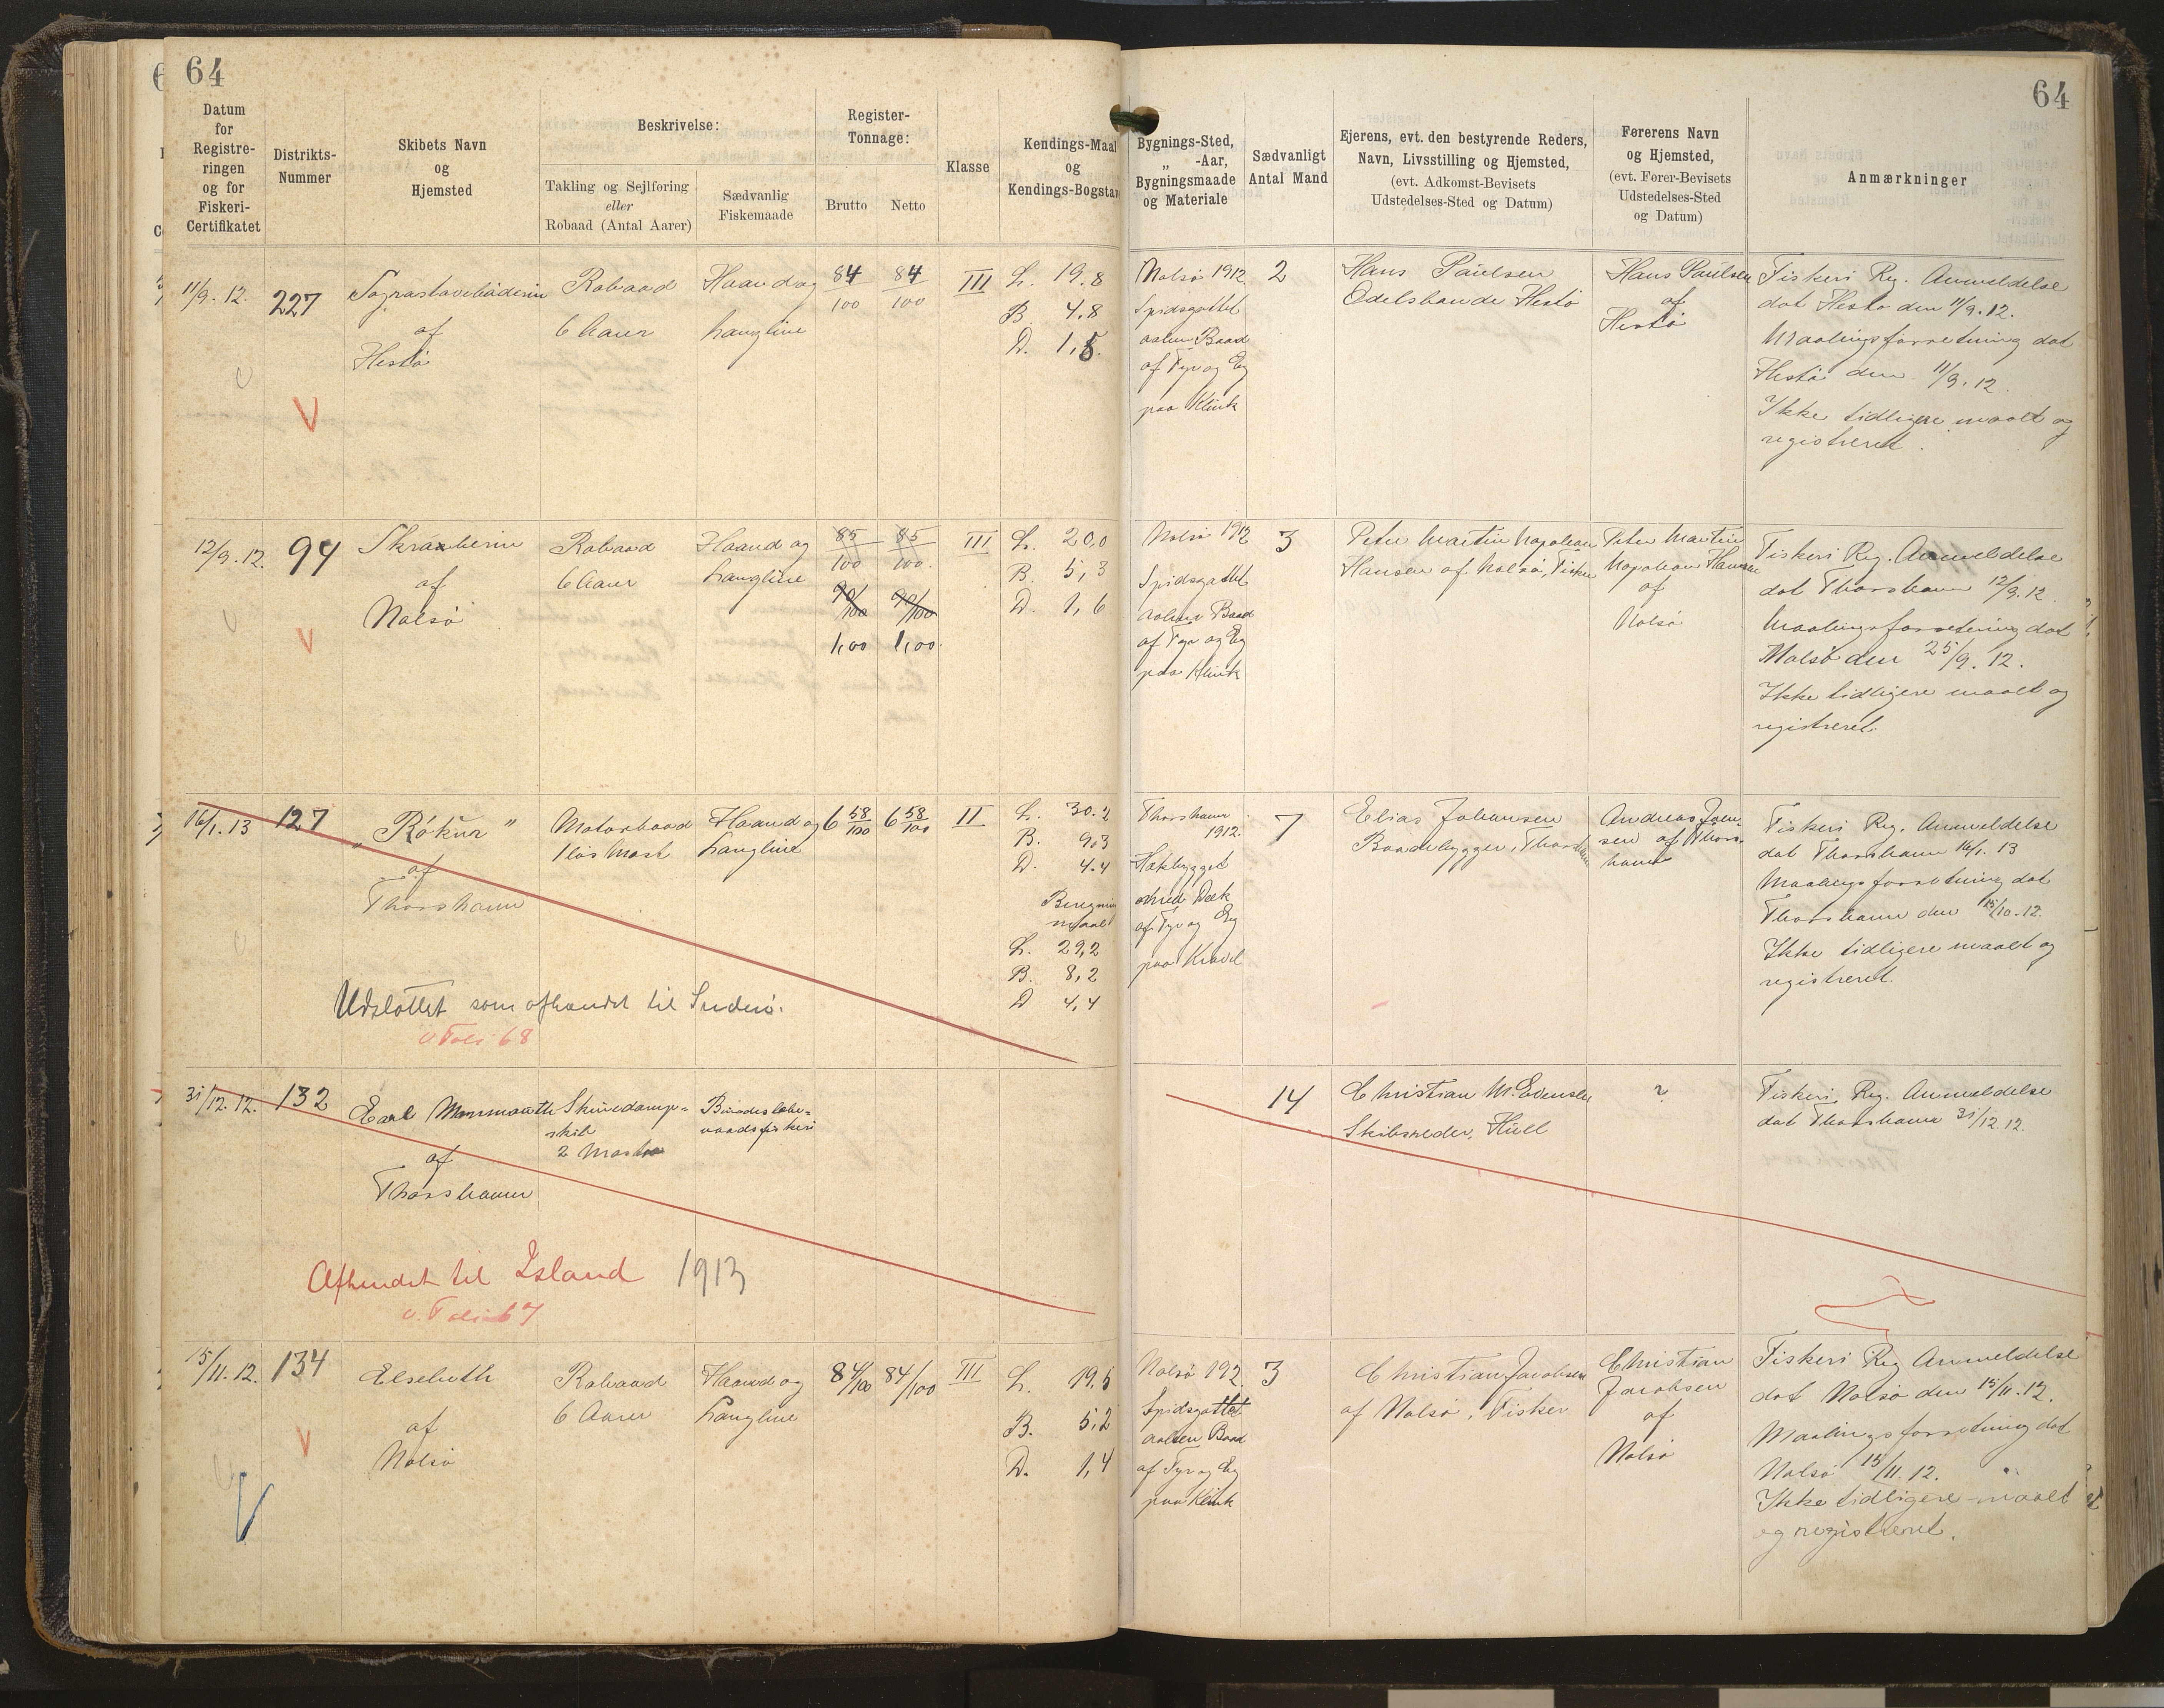 64
64
Datum
for
Registre-
ringen
og for
Fiskeri-
Certifikatet
Distrikts-
Nummer
Skibets Navn
og
Hjemsted
Beskrivelse:
Takling og Sejlføring
eller
Robaad (Antal Aarer)
Sædvanlig
Fiskemaade
Register-
Tonnage:
Brutto
Netto
Klasse
Kendings-Maal
og
Kendings-Bogstav
Bygnings-Sted,
„ -Aar,
Bygningsmaade
og Materiale
Sædvanligt
Antal Mand
Ejerens, evt. den bestyrende Reders,
Navn, Livsstilling og Hjemsted,
(evt. Adkomst-Bevisets
Udstedelses-Sted og Datum)
Førerens Navn
og Hjemsted,
(evt. Fører-Bevisets
Udstedelses-Sted
og Datum)
Anmærkninger
11/9. 12.
227
af
Hestø
Robaad
6 Aarer
Haand og
Langline
84/100
84/100
III
L. 19.8
B. 4.8
D. 1,5.
Nolsø 1912
Spidsgattet
aaben Baad
af Fyr og Eg
paa Klink
2
Hans Paulsen
Odelsbonde Hestø
Hans Paulsen
af
Hestø
Fiskeri Reg. Anmeldelse
dat Hestø den 11/9. 12.
Maalingsforretning dat
Hestø den 11/9. 12.
Ikke tidligere maalt og
registreret.
12/9. 12.
94
af
Nolsø
Robaad
6 Aarer
Haand og
Langline
85/100
85/100.
90/100
90/100
1,00
1,00.
III
L. 20,0
B. 5,3
D. 1,6
Nolsø 1912
Spidsgattet
aaben Baad
af Fyr og Eg
paa Klink
3
Peter Martin Napoleon
Hansen af Nolsø, Fisker
Peter Martin
Napoleon Hansen
af
Nolsø
Fiskeri Reg. Anmeldelse
dat Thorshavn 12/9. 12.
Maalingsforretning dat
Nolsø den 25/9. 12.
Ikke tidligere maalt og
registreret.
16/1. 13
127
„Rókur“
af
Thorshavn
Motorbaad
1 løs Mast
Haand og
Langline
6 58/100
6 58/100
II
L. 30.2
B. 9,3
D. 4.4
Beregnings
maal
L. 29,2
B. 8,2
D 4,4
Thorshavn
1912.
Hækbygget
med Dæk
af Fyr og Eg
paa Kravel
7
Elias Johansen
Baadebygger, Thorshavn
Andreas Joen-
sen af Thors-
havn
Fiskeri Reg. Anmeldelse
dat Thorshavn 16/1. 13
Maalingsforretning dat
Thorshavn den 15/10. 12.
Ikke tidligere maalt og
registreret.
Udslettet som afhændet til Suderø.
v Foli 68
31/12. 12.
132
Earl Monmouth
af
Thorshavn
Skruedamp-
skib
2 Master
14
Skibsreder, Hull
?
Fiskeri Reg. Anmeldelse
dat Thorshavn 31/12. 12.
Afhændet til Island 1913
v. Foli 67
15/11. 12.
134
Elsebeth
af
Nolsø
Robaad
6 Aarer
Haand og
Langline
84/100
84/100
III
L. 19.5
B. 5,2
D. 1,4
Nolsø 192
Spidsgattet
aaben Baad
af Fyr og Eg
paa Klink
3
Christian Jacobsen
af Nolsø, Fisker
Christian
Jacobsen
af
Nolsø
Fiskeri Reg Anmeldelse
dat Nolsø den 15/11. 12.
Maalingsforretning dat
Nolsø 15/11. 12.
Ikke tidligere maalt
og registreret.